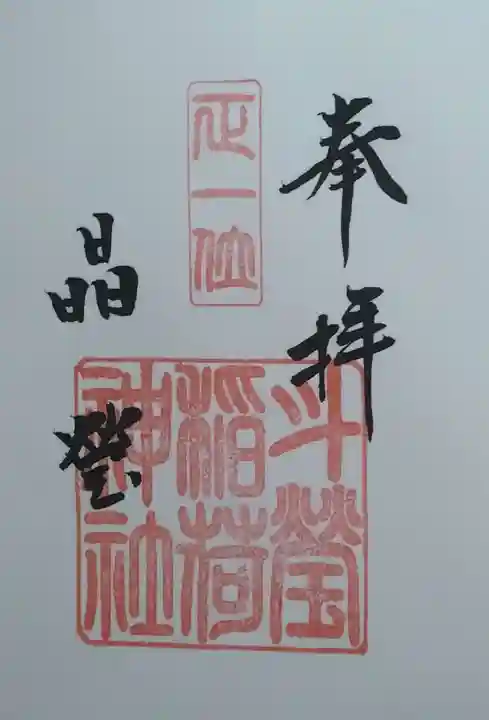 奉拝
正一位
斗瑩
稲荷
神社
晶